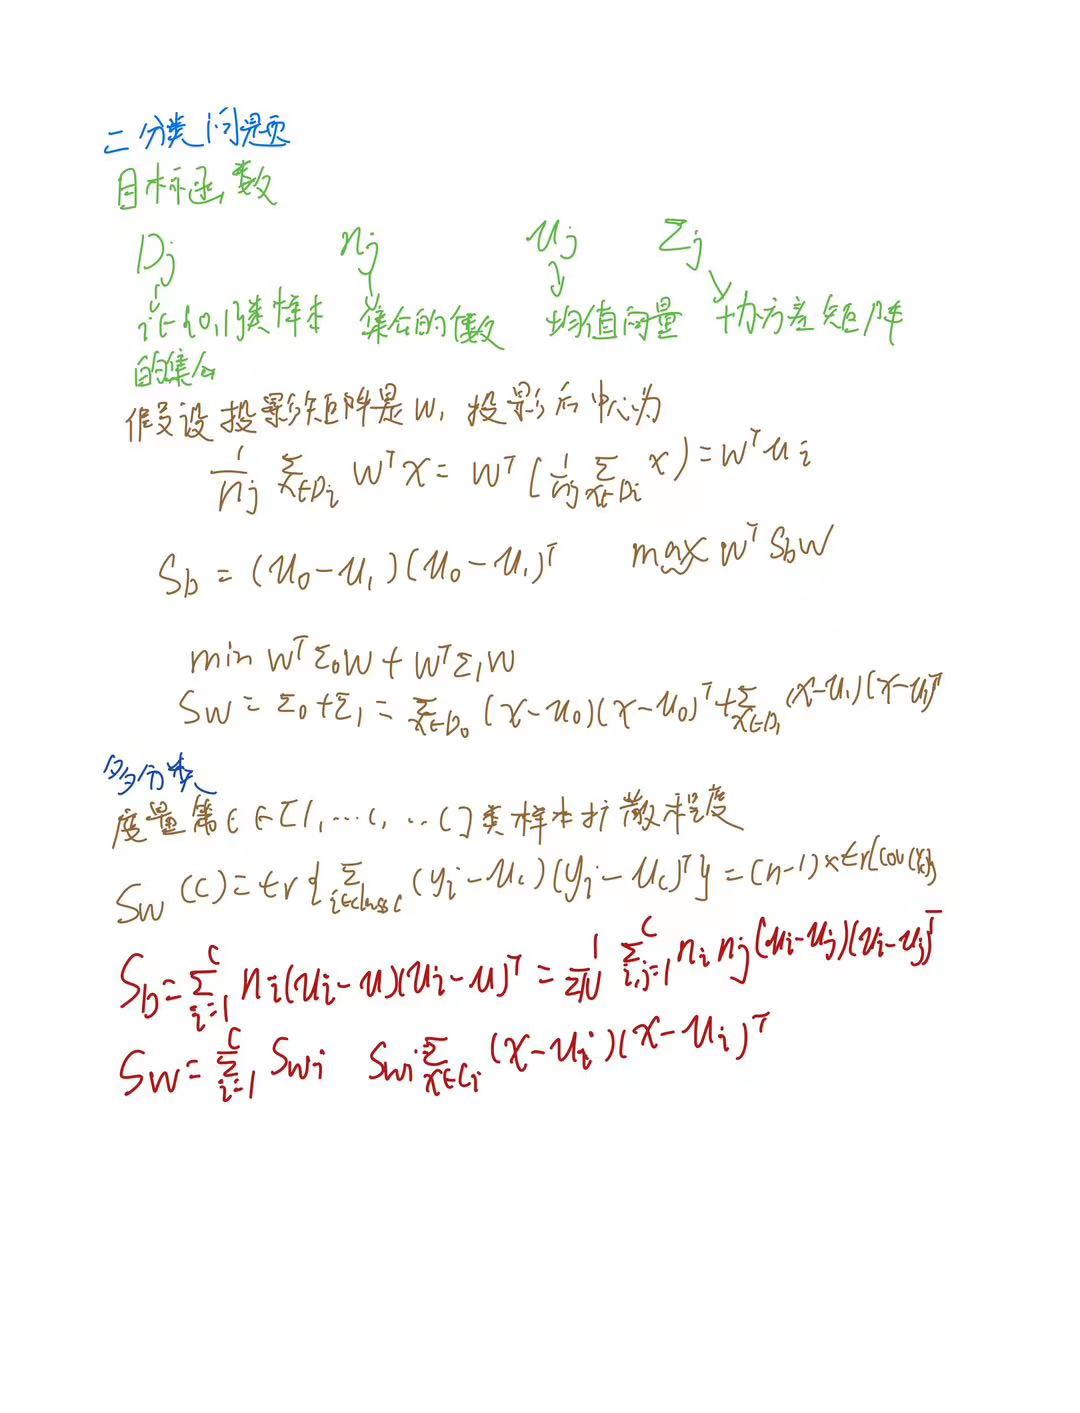 二分类问题
目标函数
Dj nj uj Σj
i∈{0,1}类样本 集合的个数 均值向量 协方差矩阵
的集合
假设投影矩阵是w, 投影后中心为
1/nj Σx∈Di wᵀx = wᵀ(1/nj Σx∈Di x) = wᵀui
Sb = (u0-u1)(u0-u1)ᵀ max wᵀSbw
min wᵀΣ0w + wᵀΣ1w
Sw = Σ0+Σ1 = Σx∈D0 (x-u0)(x-u0)ᵀ+Σx∈D1 (x-u1)(x-u1)ᵀ
多分类
度量第c∈[1,...c,..C]类样本扩散程度
Sw(c)=tr{Σi∈class c (yi-uc)(yi-uc)ᵀ}=(n-1)×tr{cov(Yc)}
Sb=Σ(i=1→C) ni(ui-u)(ui-u)ᵀ = 1/2N Σ(i,j=1→C) ni nj(ui-uj)(ui-uj)ᵀ
Sw=Σ(i=1→C) Swi Swi Σx∈Ci (x-ui)(x-ui)ᵀ